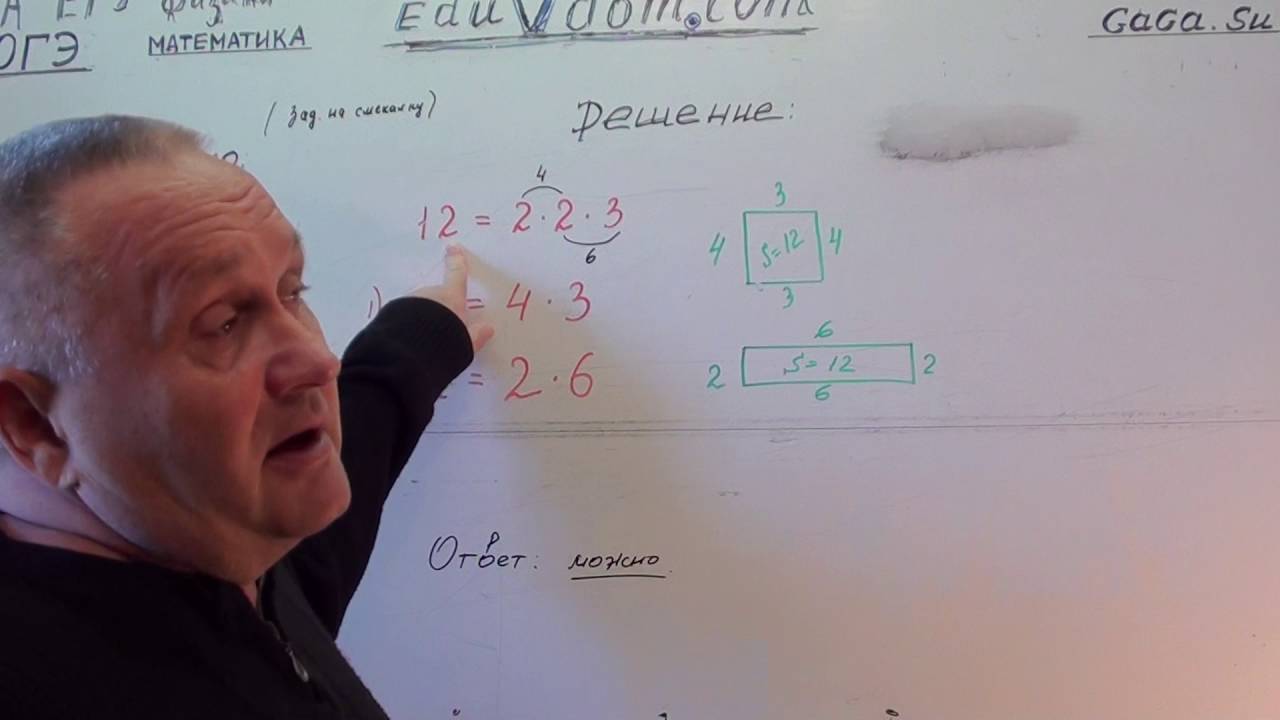 А ЕГЭ Физика
ОГЭ МАТЕМАТИКА
EduVdom.com
GaGa.Su
(Зад. на смекалку)
Решение:
4
12 = 2·2·3
6
1) = 4·3
= 2·6
3
4 S=12 4
3
6
2 S=12 2
6
Ответ: можно.